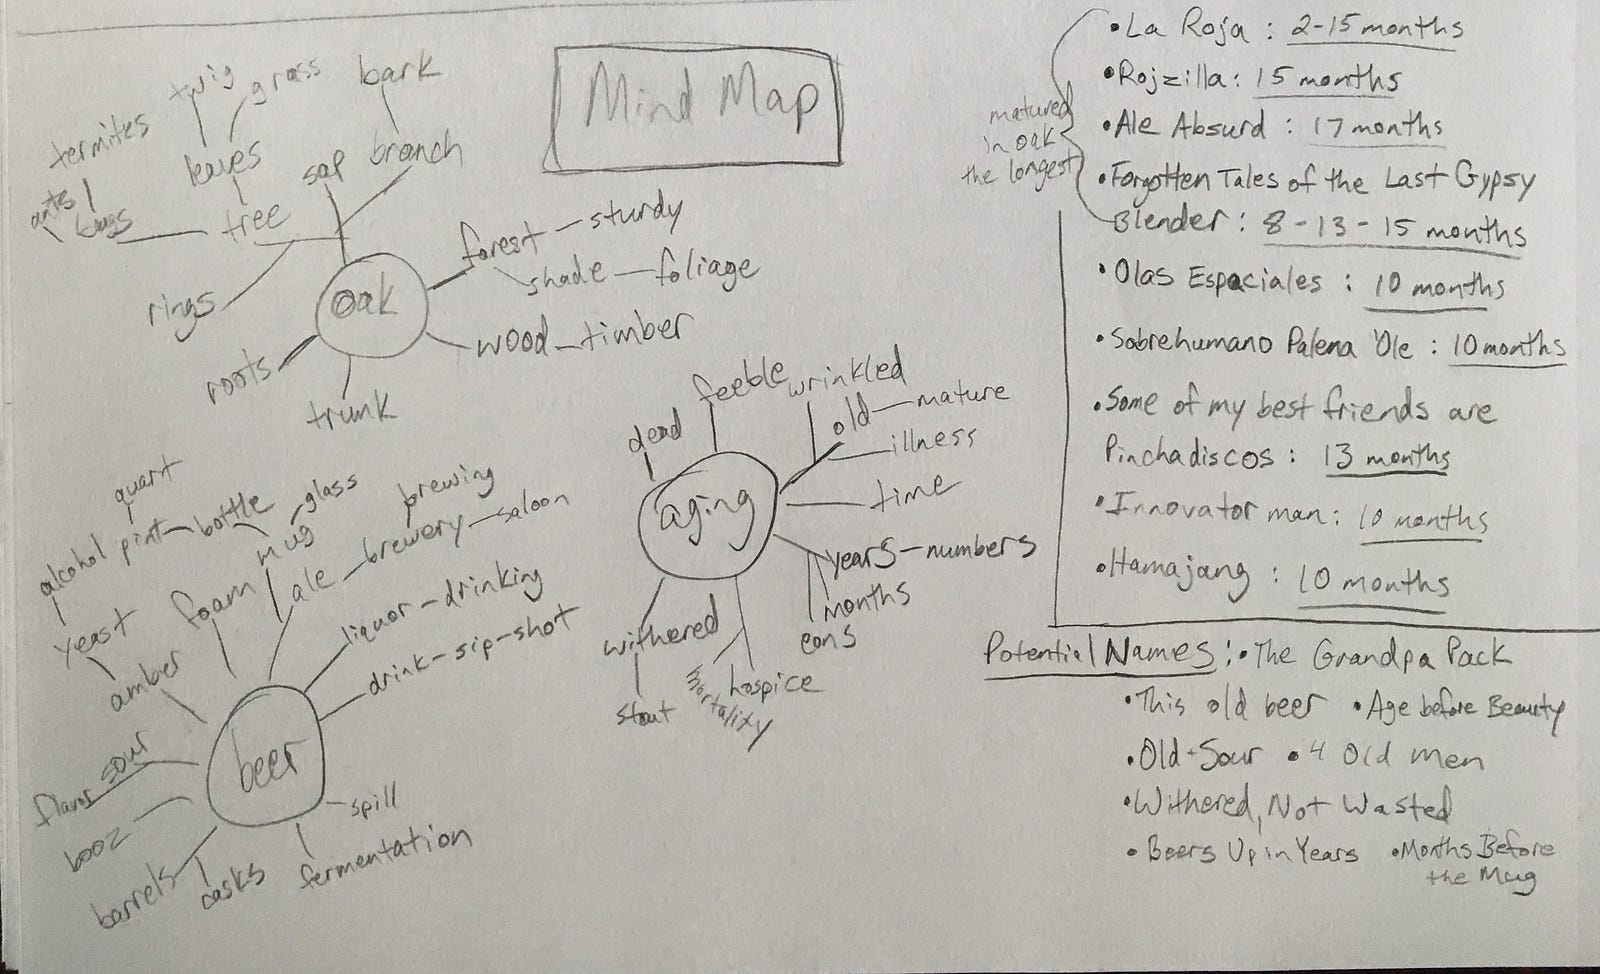 Mind Map
twig
grass
bark
termites
leaves
sap
branch
ants
bugs
tree
rings
oak
forest - sturdy
shade - foliage
wood - timber
roots
trunk
feeble
wrinkled
dead
old - mature
illness
aging
time
years - numbers
months
eons
withered
stout
mortality
hospice
quart
alcohol
pint - bottle
glass
mug
brewing
ale - brewery - saloon
yeast
foam
liquor - drinking
amber
drink - sip - shot
sour
flavor
beer
booz
spill
barrels
casks
fermentation
matured
in oak
the longest
• La Roja : 2-15 months
• Rojzilla : 15 months
• Ale Absurd : 17 months
• Forgotten Tales of the Last Gypsy
Blender : 8 - 13 - 15 months
• Olas Espaciales : 10 months
• Sobrehumano Palena 'Ole : 10 months
• Some of my best friends are
Pinchadiscos : 13 months
• Innovator man : 10 months
• Hamajang : 10 months
Potential Names : • The Grandpa Pack
• This old beer • Age before Beauty
• Old + Sour • 4 Old Men
• Withered, Not Wasted
• Beers Up in Years • Months Before
the Mug